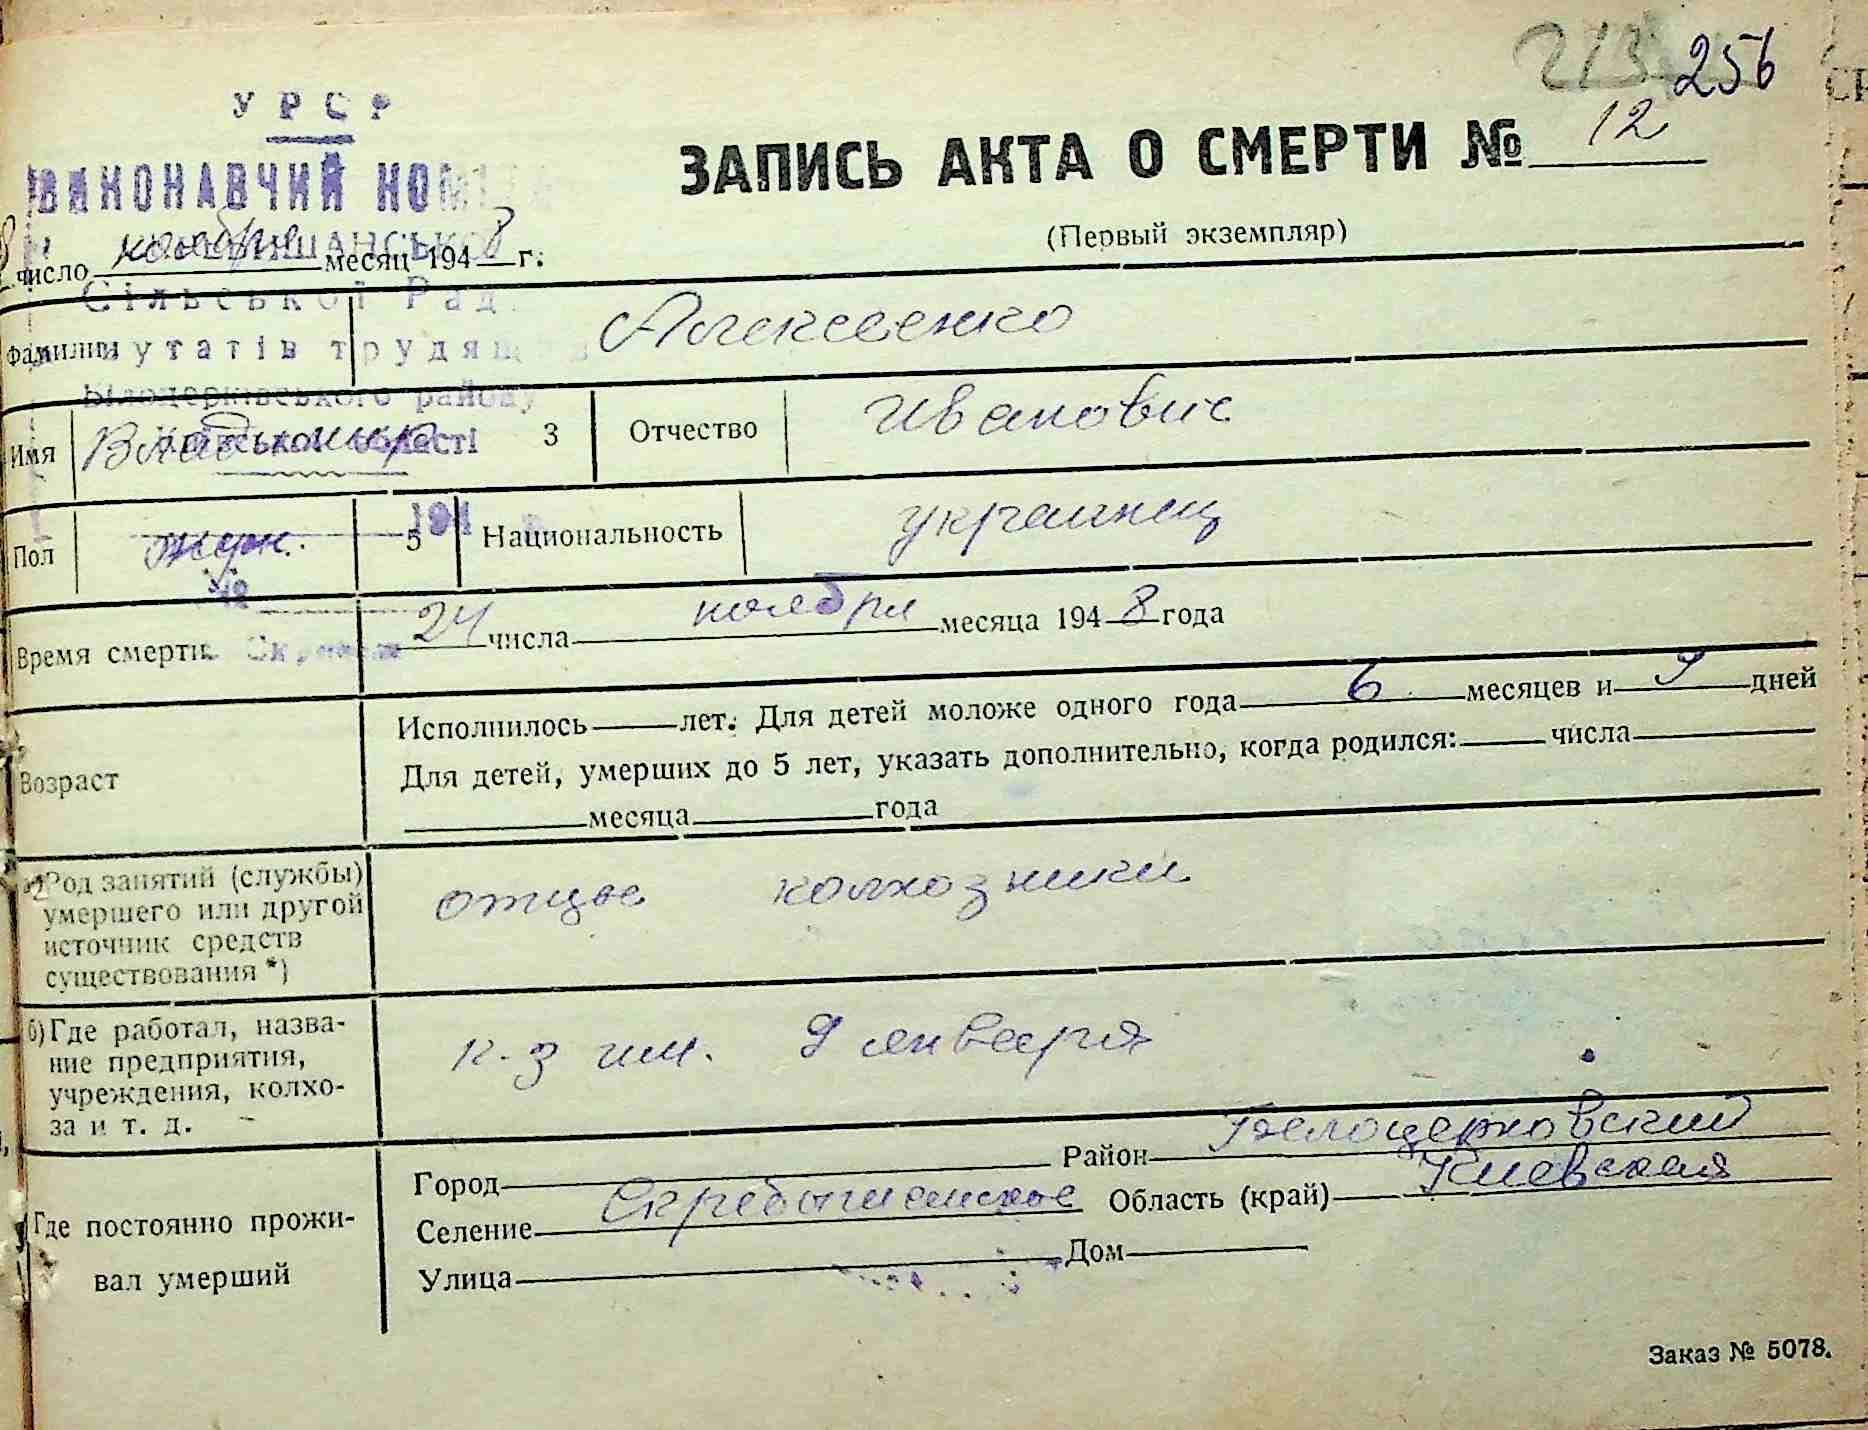 213 256
УРСР
ЗАПИСЬ АКТА О СМЕРТИ № 12
ВИКОНАВЧИЙ КОМІТЕТ
(Первый экземпляр)
8 число ноября месяц 1948 г.
Сільської Рад
Фамилия Алексеенко
депутатів трудящ
Білоцерківського району
Имя Владимир 3 Отчество Иванович
області
Пол муж. 5 Национальность украинец
194
Время смерти 24 числа ноября месяца 1948 года
Исполнилось лет. Для детей моложе одного года 6 месяцев и 9 дней
Возраст Для детей, умерших до 5 лет, указать дополнительно, когда родился: числа
месяца года
Род занятий (службы)
умершего или другой отцы колхозники
источник средств
существования *)
б) Где работал, назва-
ние предприятия, к-з им. 9 января
учреждения, колхо-
за и т. д.
Город Район Белоцерковский
Где постоянно прожи- Селение Область (край) Киевская
вал умерший Улица Дом
Заказ № 5078.